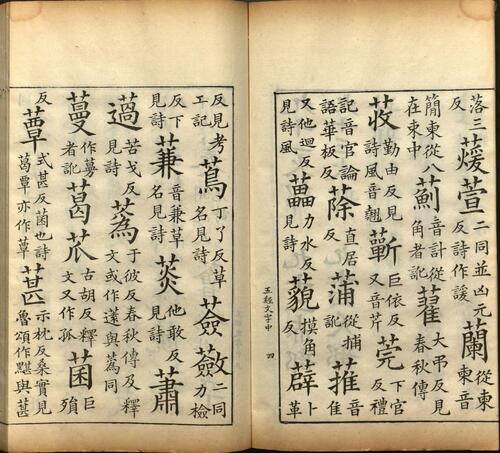 落三反蕿萱二同並凶元反詩作諼蘭從東東音
簡東從八在東中薊音計從角者訛藋大弔反見春秋傳
荍勤由反見詩風音翹蘄巨依反又音芹莞下官反禮
記音官論語華板反蒢直居反蒲從捕訛蓷音隹
又他迴反見詩風藟力水反見詩藐摸角反薜卜革
五經文字中 四
反見考工記蔦丁了反草名見詩薟蘞二同力檢
反下見詩蒹音兼草名見詩菼他敢反見詩蕭
薖苦戈反見詩蔿于彼反春秋傳及釋文或作薳與蔿同
蔓作蔓者訛葛苽古胡反釋文又作孤菌巨殞
反蕈式甚反菌也詩葛蕈亦作蕈葚示枕反桑實見魯頌作黮與葚